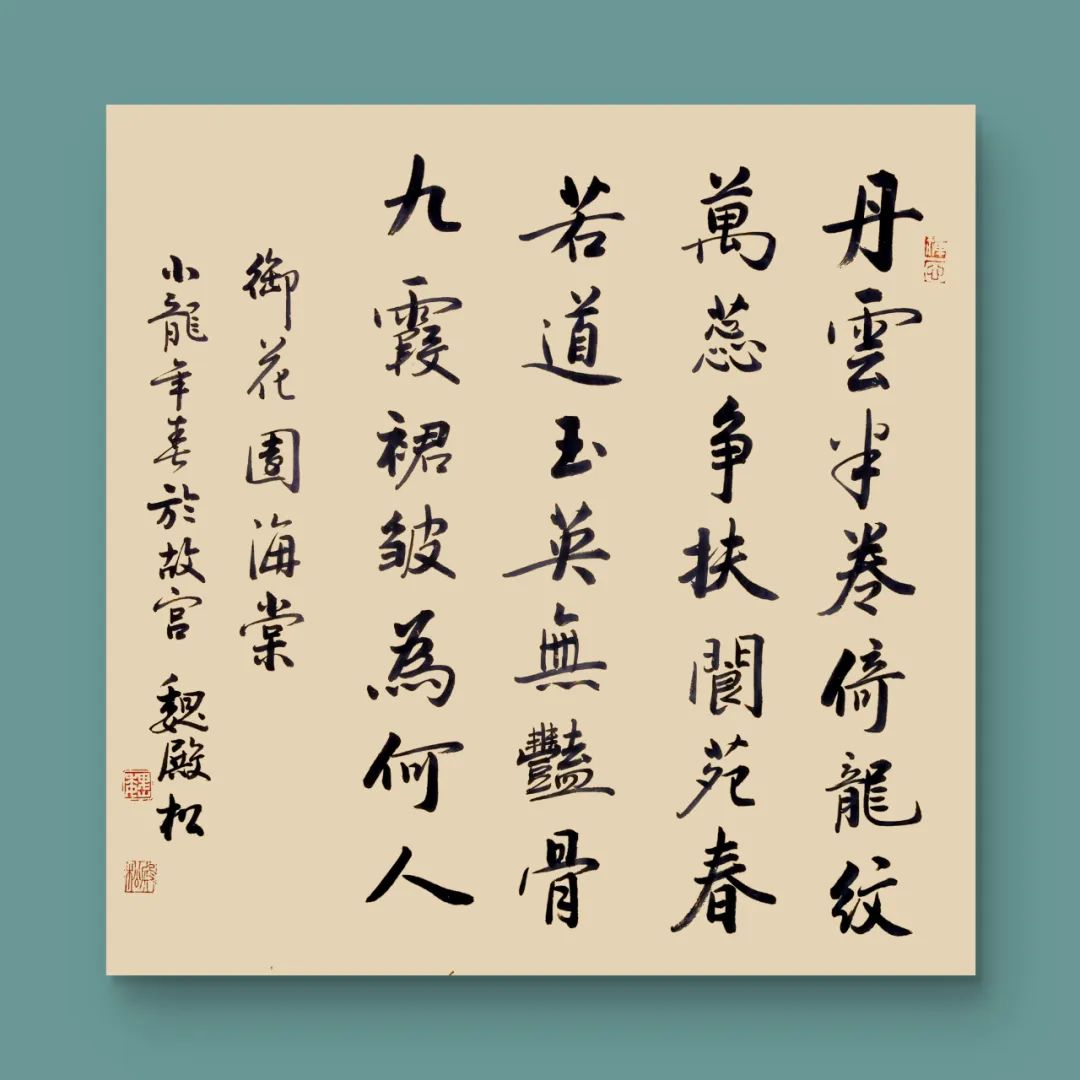 丹雲半卷倚龍紋
萬蕊争扶閬苑春
若道玉英無豔骨
九霞裙皱為何人
御花園海棠
小龍年春於故宫 魏殿松